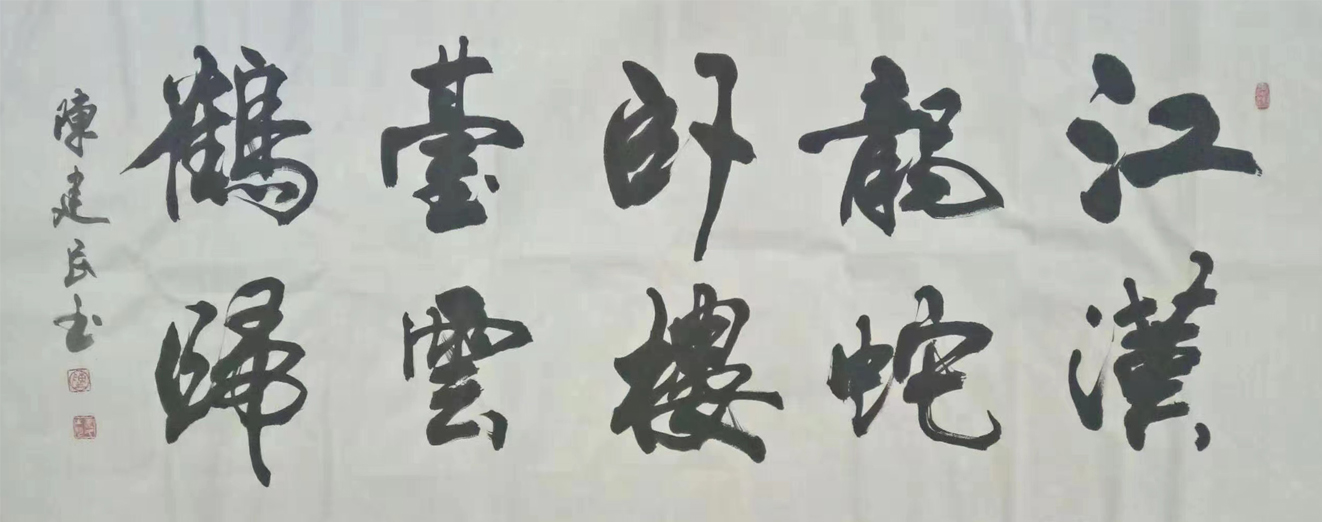 江漢
龍蛇
卧樓
臺雲
鶴歸
陳建民书